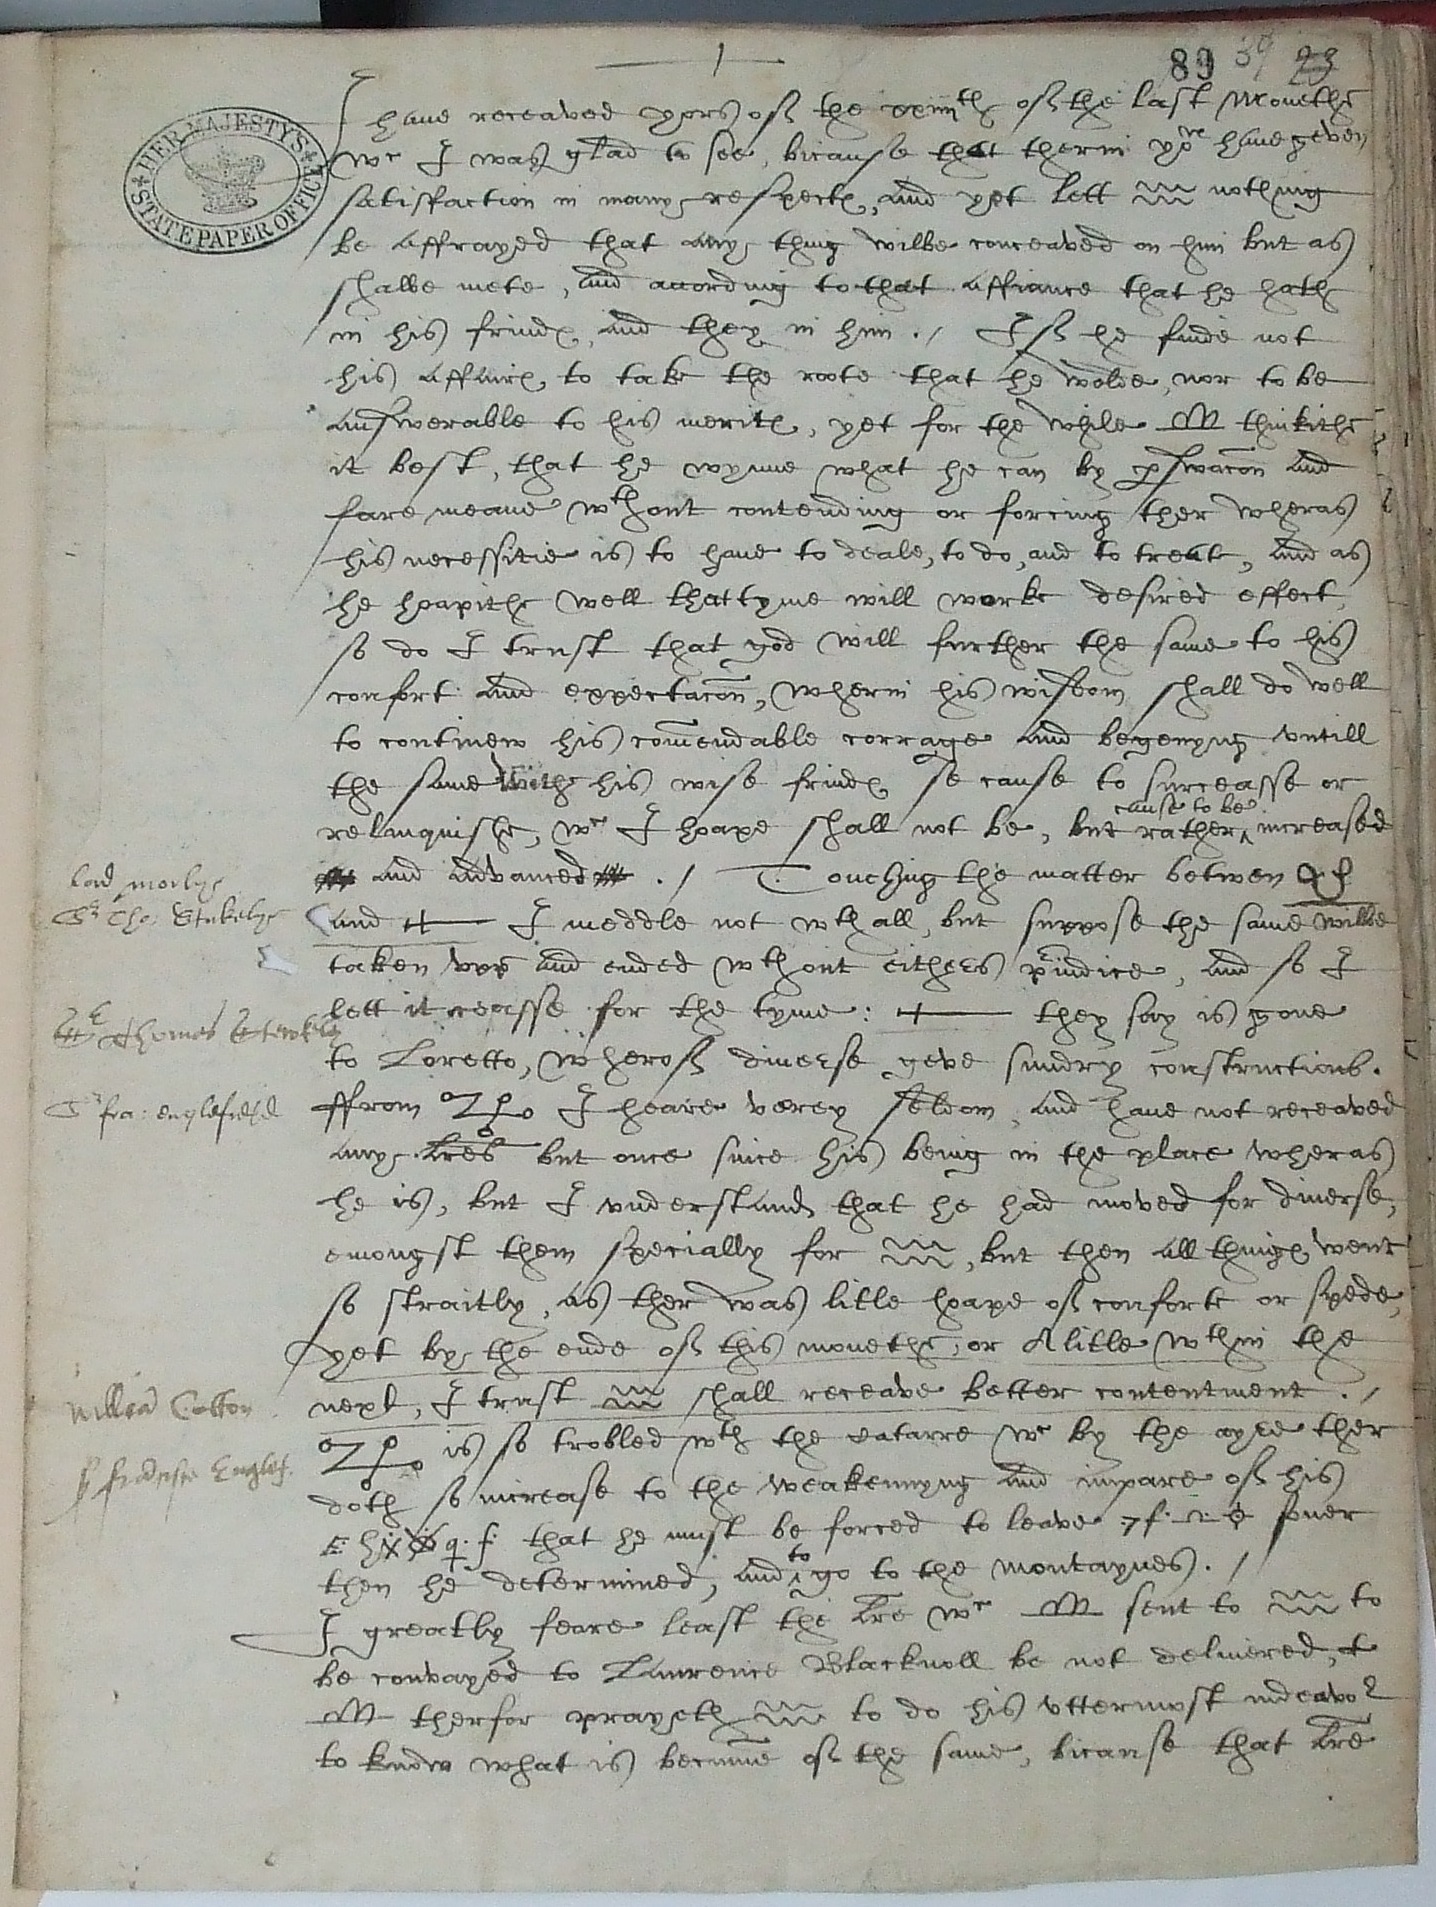 89 39 23
HER MAJESTY'S STATE PAPER OFFICE
I have receaved yors of the xxiiijth of the last Monethe
wch I was glad to see, bicause that therin yow have geven
satisfaction in many respectes, and yet lett nothing
be affrayed that any thing wilbe conceaved on him but as
shalbe mete, and according to that affiance that he hath
in his frindes, and they in him ./ If he finde not
his affaires to take the roote that he wolde, nor to be
answerable to his merites, yet for the while M thinkithe
it best, that he wynne what he can by perswacon and
fare meane wthout contending or forcing ther wheras
his necessitie is to have to deale, to do, and to treat, and as
he hoapithe well that tyme will worke desired effect,
so do I trust that god will further the same to his
confort and expectacon, wherin his wisdom shall do well
to continew his comendable corrage and begenyng untill
the same with his wise frindes se cause to surceasse or
relinquishe, wch I hoape shall not be, but rather cause to be increased
and advanced ./ Touching the matter betwen
Lord morlye
Sr Tho: Stukelye
and I meddle not wthall, but suppose the same wilbe
taken upp and ended wthout eithers preiudice, and so I
lett it ceasse for the tyme: they say is gone
Sr Thomas Stewkley
to Loretto, wherof diverse geve sundry constructions.
Sr fra: englefield
ffrom I heare verey seldom, and have not receaved
any lres but once since his being in the place wheras
he is, but I understand that he had moved for diverse,
emongst them specially for , but then all thinges went
so straitly, as ther was litle hoape of conforte or spede,
yet by the ende of this monethe, or a litle wthin the
next, I trust shall receave better contentment ./
William Cotton
is so trobled wth the catarre wch by the ayre ther
Sr frances Englef.
doth so increase to the weakennyng and impare of his
that he must be forced to leave soner
then he determined, and to go to the montaynes ./
I greatly feare least the lre wch M sent to to
be convayed to Laurence Blacknoll be not delivered, &
M therfor prayeth to do his uttermost indeavor
to know what is becumme of the same, bicause that lre